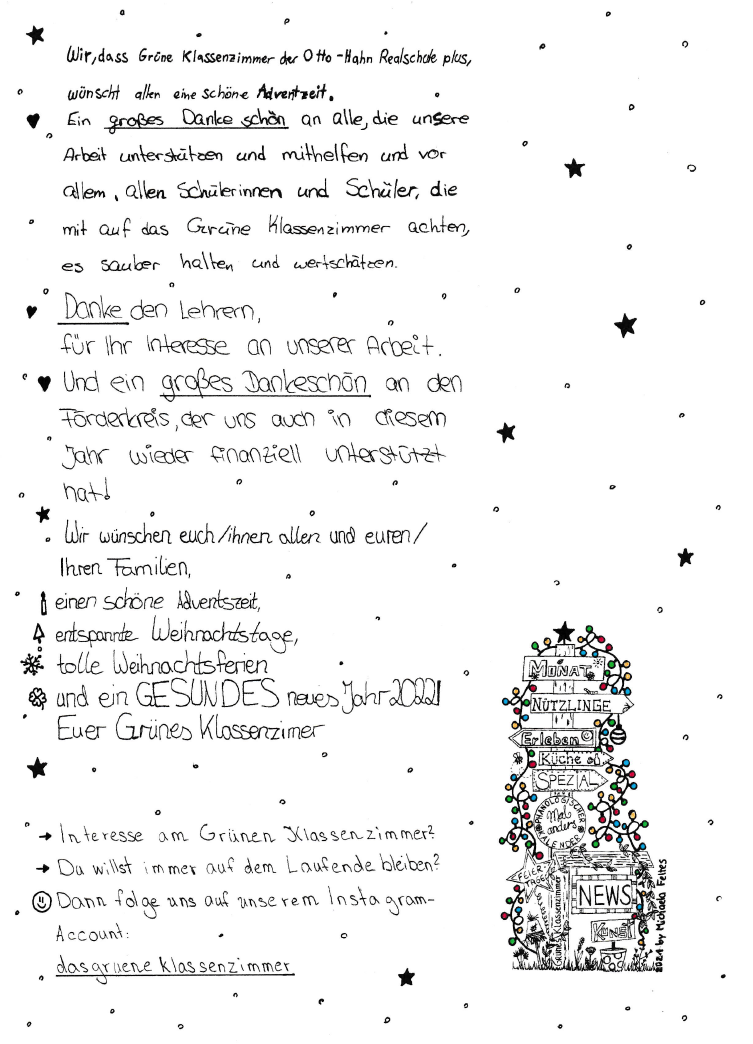 Wir, dass Grüne Klassenzimmer der Otto-Hahn Realschule plus,
wünscht allen eine schöne Adventzeit.
Ein großes Danke schön an alle, die unsere
Arbeit unterstützen und mithelfen und vor
allem, allen Schülerinnen und Schüler, die
mit auf das Grüne Klassenzimmer achten,
es sauber halten und wertschätzen.
Danke den Lehrern,
für Ihr Interesse an unserer Arbeit.
Und ein großes Dankeschön an den
Förderkreis, der uns auch in diesem
Jahr wieder finanziell unterstützt
hat!
Wir wünschen euch/ihnen allen und euren/
Ihren Familien,
einen schöne Adventszeit,
entspannte Weihnachtstage,
tolle Weihnachtsferien
und ein GESUNDES neues Jahr 2022!
Euer Grünes Klassenzimer
→ Interesse am Grünen Klassenzimmer?
→ Du willst immer auf dem Laufende bleiben?
Dann folge uns auf unserem Instagram-
Account:
dasgruene Klassenzimmer
MONAT
NÜTZLINGE
Erleben
Küche
SPEZIAL
PHÄNOLOGISCHER
Mal anders
KALENDER
FEIER
TAGE
Grünes Klassenzimmer
NEWS
KUNST
2021 by Michaela Feltes